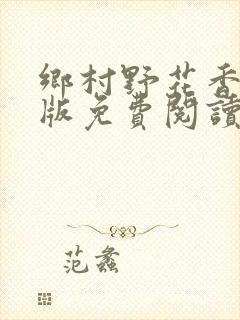 鄉村野花香
版免費閱讀
范蠡